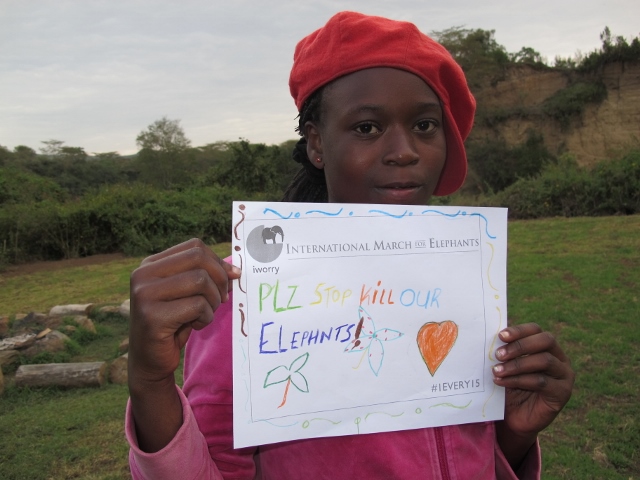 INTERNATIONAL MARCH FOR ELEPHANTS
iworry
PLZ STOP KILL OUR
ELEPHNTS!
#1EVERY15